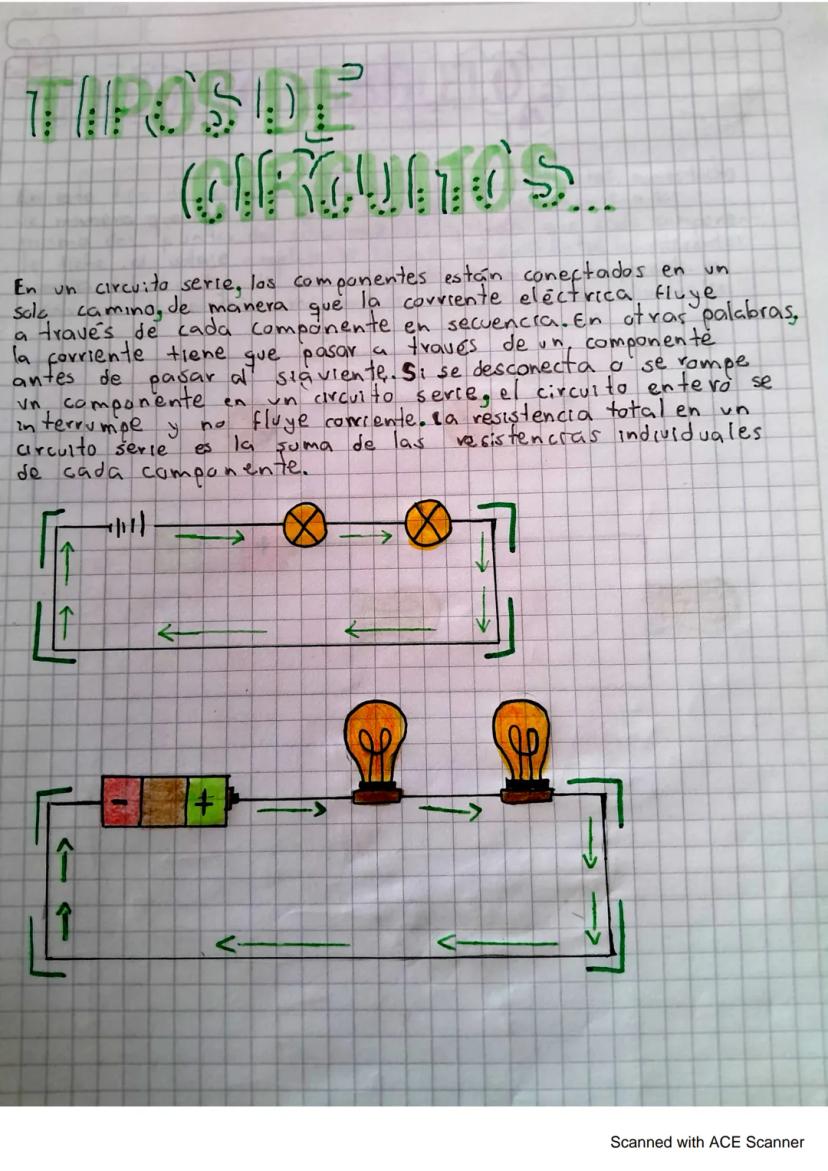 TIPOS DE
CIRCUITOS...
En un circuito serie, los componentes están conectados en un
solo camino, de manera que la corriente eléctrica fluye
a través de cada componente en secuencia. En otras palabras,
la corriente tiene que pasar a través de un componente
antes de pasar al siguiente. Si se desconecta o se rompe
un componente en un circuito serie, el circuito entero se
interrumpe y no fluye corriente. La resistencia total en un
circuito serie es la suma de las resistencias individuales
de cada componente.
- +
Scanned with ACE Scanner